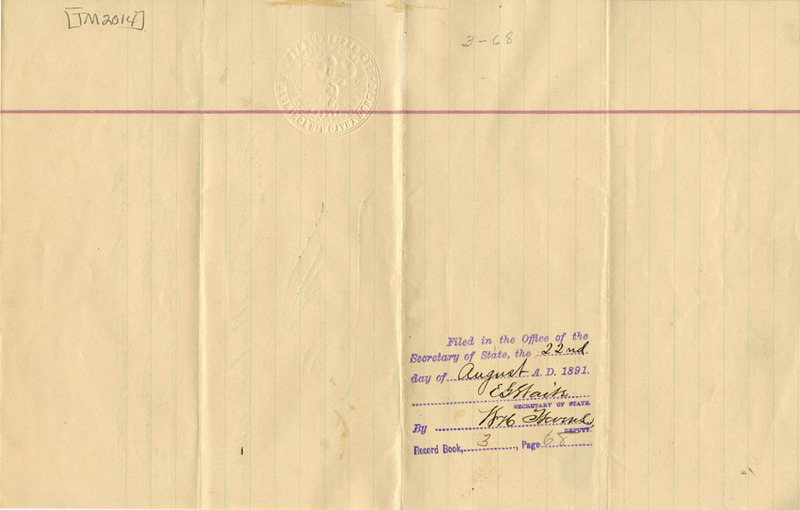 [TM2014]
3-68
Filed in the Office of the
Secretary of State, the 22nd
day of August A. D. 1891.
E G Waite
SECRETARY OF STATE.
By
DEPUTY.
Record Book, 3, Page 68